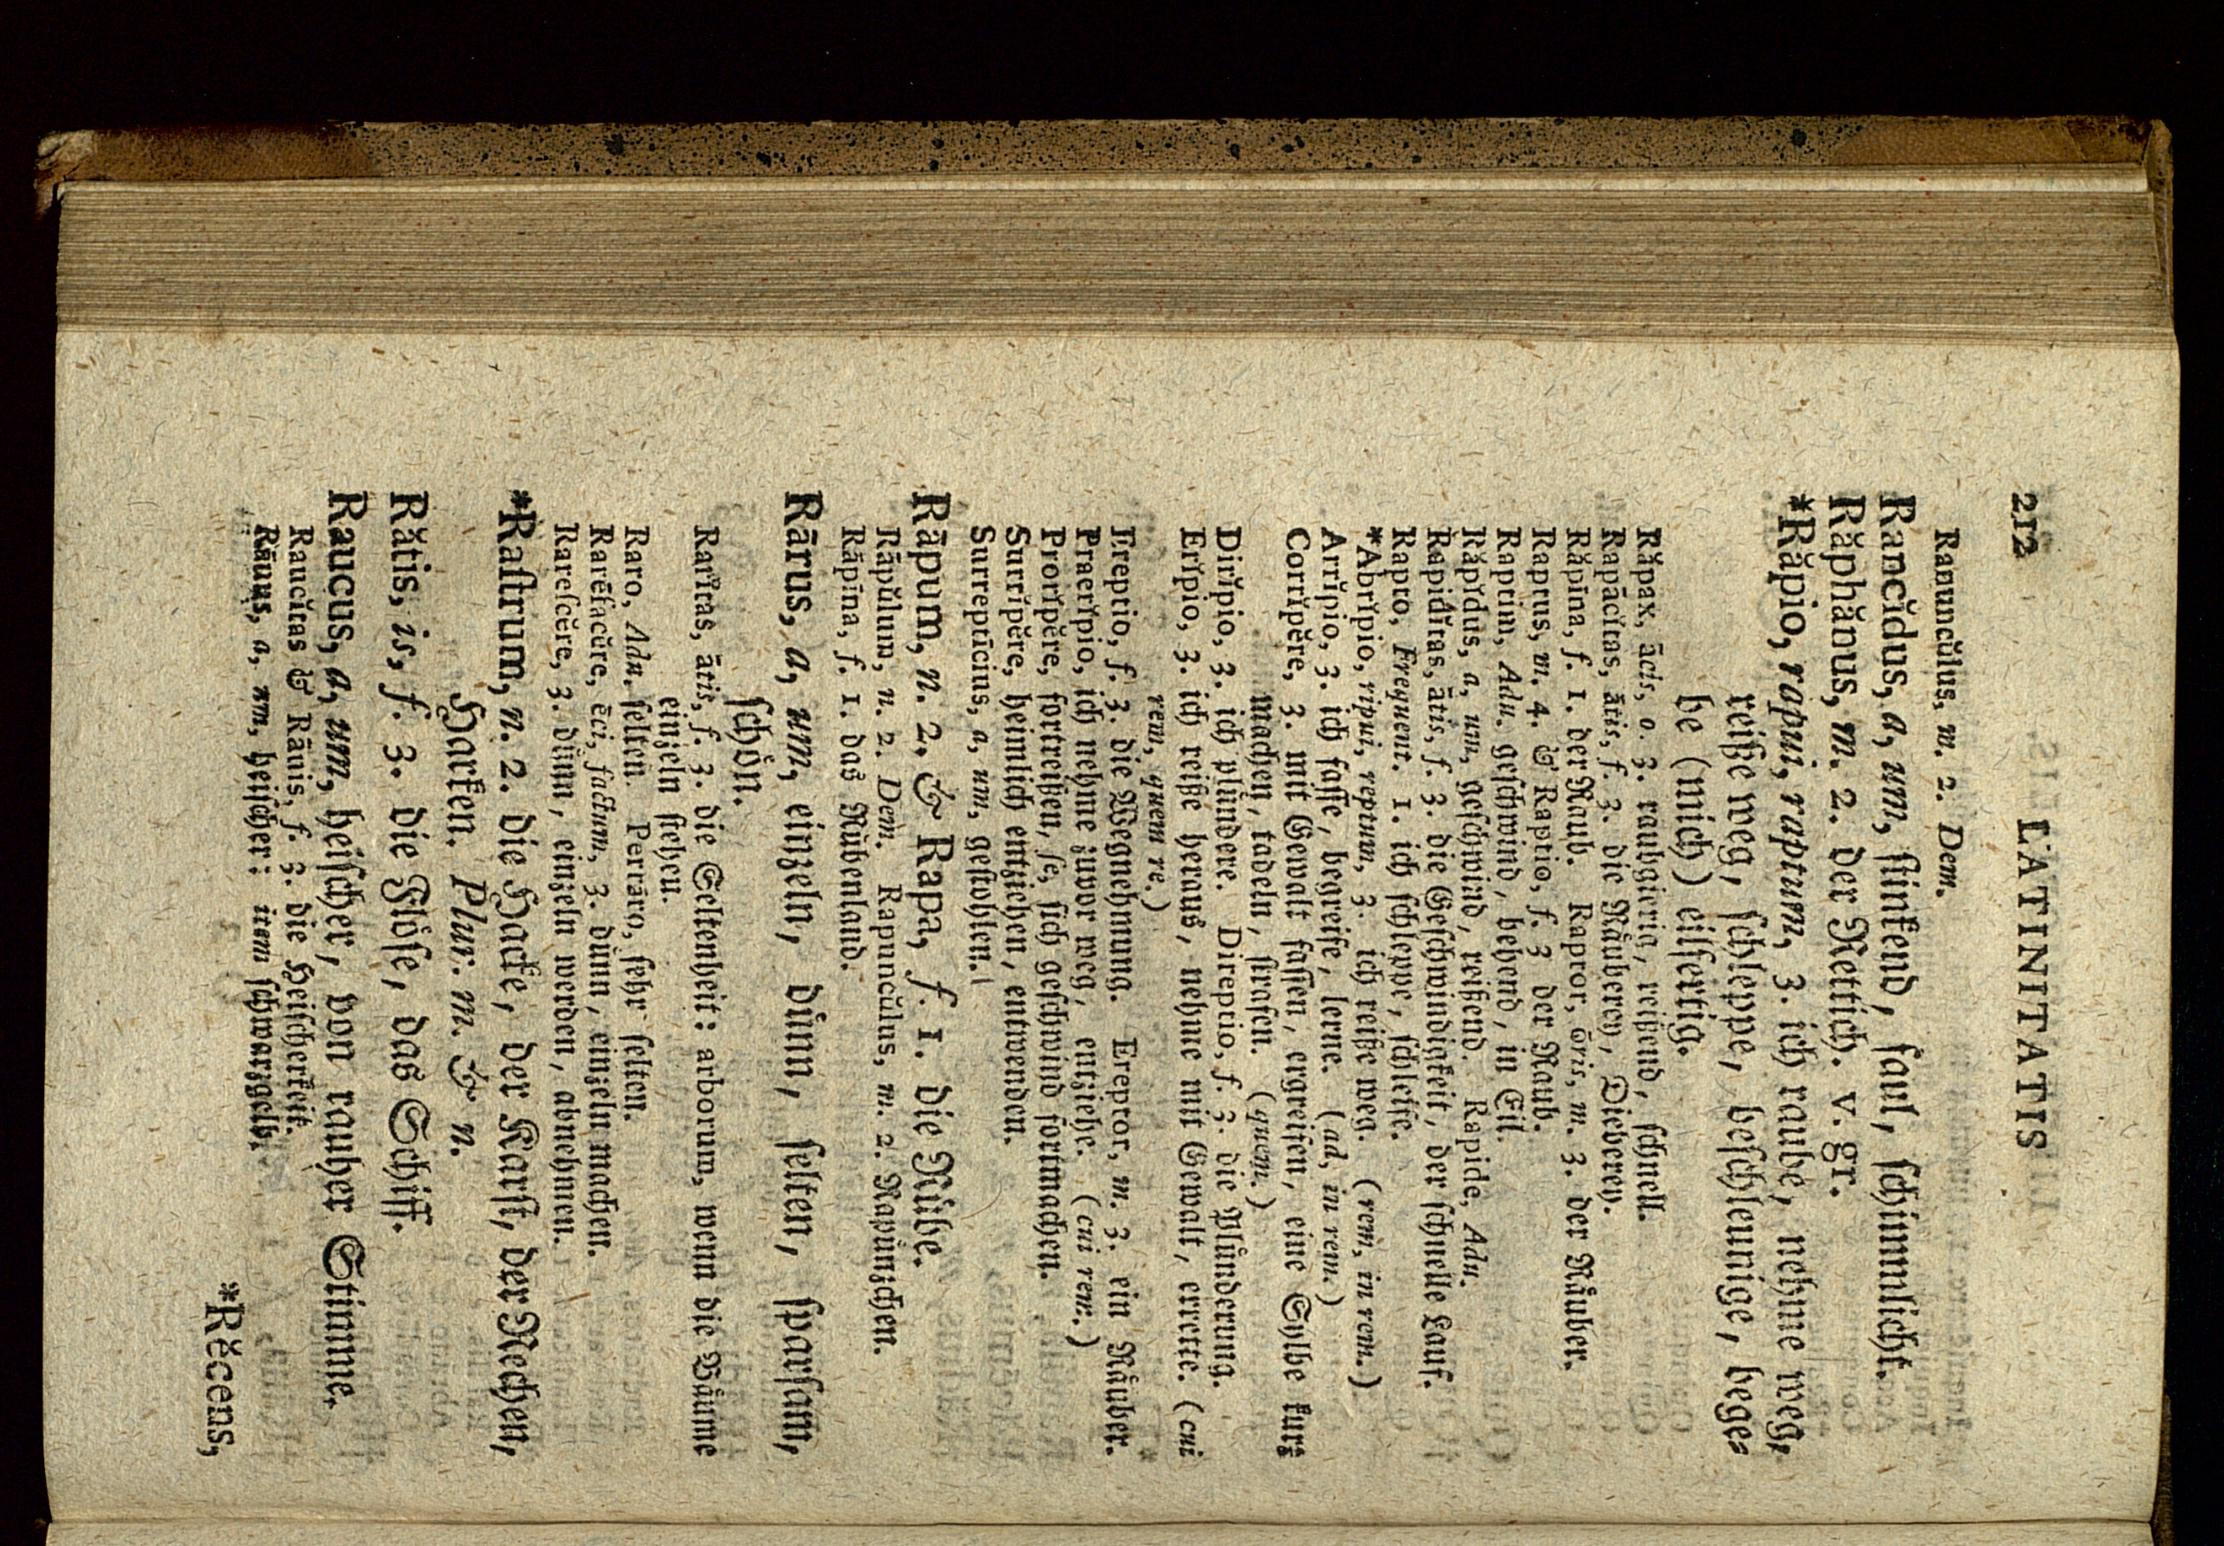 212 LATINITATIS
Ranuncŭlus, m. 2. Dem.
Rancĭdus, a, um, ſtinkend, faul, ſchimmlicht.
Răphănus, m. 2. der Rettich. v. gr.
*Răpio, rapui, raptum, 3. ich raube, nehme weg,
reiße weg, ſchleppe, beſchleunige, bege-
be (mich) eilfertig.
Răpax, ācis, o. 3. raubgierig, reißend, ſchnell.
Rapācĭtas, ātis, f. 3. die Räuberey, Dieberey.
Răpīna, f. 1. der Raub. Raptor, ōris, m. 3. der Räuber.
Raptus, m. 4. & Raptio, f. 3 der Raub.
Raptim, Adu. geſchwind, behend, in Eil.
Răpĭdus, a, um, geſchwind, reißend. Rapide, Adu.
Rapidĭtas, ātis, f. 3. die Geſchwindigkeit, der ſchnelle Lauf.
Rapto, Frequent. 1. ich ſchleppe, ſchleife.
*Abrĭpio, ripui, reptum, 3. ich reiße weg. (rem, in rem.)
Arrĭpio, 3. ich faſſe, begreife, lerne. (ad, in rem.)
Corrĭpĕre, 3. mit Gewalt faſſen, ergreifen, eine Sylbe kurz
machen, tadeln, ſtrafen. (quem.)
Dirĭpio, 3. ich plündere. Direptio, f. 3. die Plünderung.
Erĭpio, 3. ich reiße heraus, nehme mit Gewalt, errette. (cui
rem, quem re.)
Ereptio, f. 3. die Wegnehmung. Ereptor, m. 3. ein Räuber.
Praerĭpio, ich nehme zuvor weg, entziehe. (cui rem.)
Prorĭpĕre, fortreißen, ſe, ſich geſchwind fortmachen.
Surrĭpĕre, heimlich entziehen, entwenden.
Surreptīcius, a, um, geſtohlen.
Rāpum, n. 2. & Rapa, f. 1. die Rübe.
Rāpŭlum, n. 2. Dem. Rapuncŭlus, m. 2. Rapünzchen.
Rāpīna, f. 1. das Rübenland.
Rārus, a, um, einzeln, dünn, ſelten, ſparſam,
ſchön.
Rarĭtas, ātis, f. 3. die Seltenheit: arborum, wenn die Bäume
einzeln ſtehen.
Raro, Adu. ſelten. Perrāro, ſehr ſelten.
Rarēfacĕre, ēci, factum, 3. dünn, einzeln machen.
Rareſcĕre, 3. dünn, einzeln werden, abnehmen.
*Raſtrum, n. 2. die Hacke, der Karſt, der Rechen,
Harken. Plur. m. & n.
Rătis, is, f. 3. die Flöſe, das Schiff.
Raucus, a, um, heiſcher, von rauher Stimme.
Raucĭtas & Rāuis, f. 3. die Heiſcherkeit.
Rāuus, a, um, heiſcher: item ſchwarzgelb.
*Rĕcens,